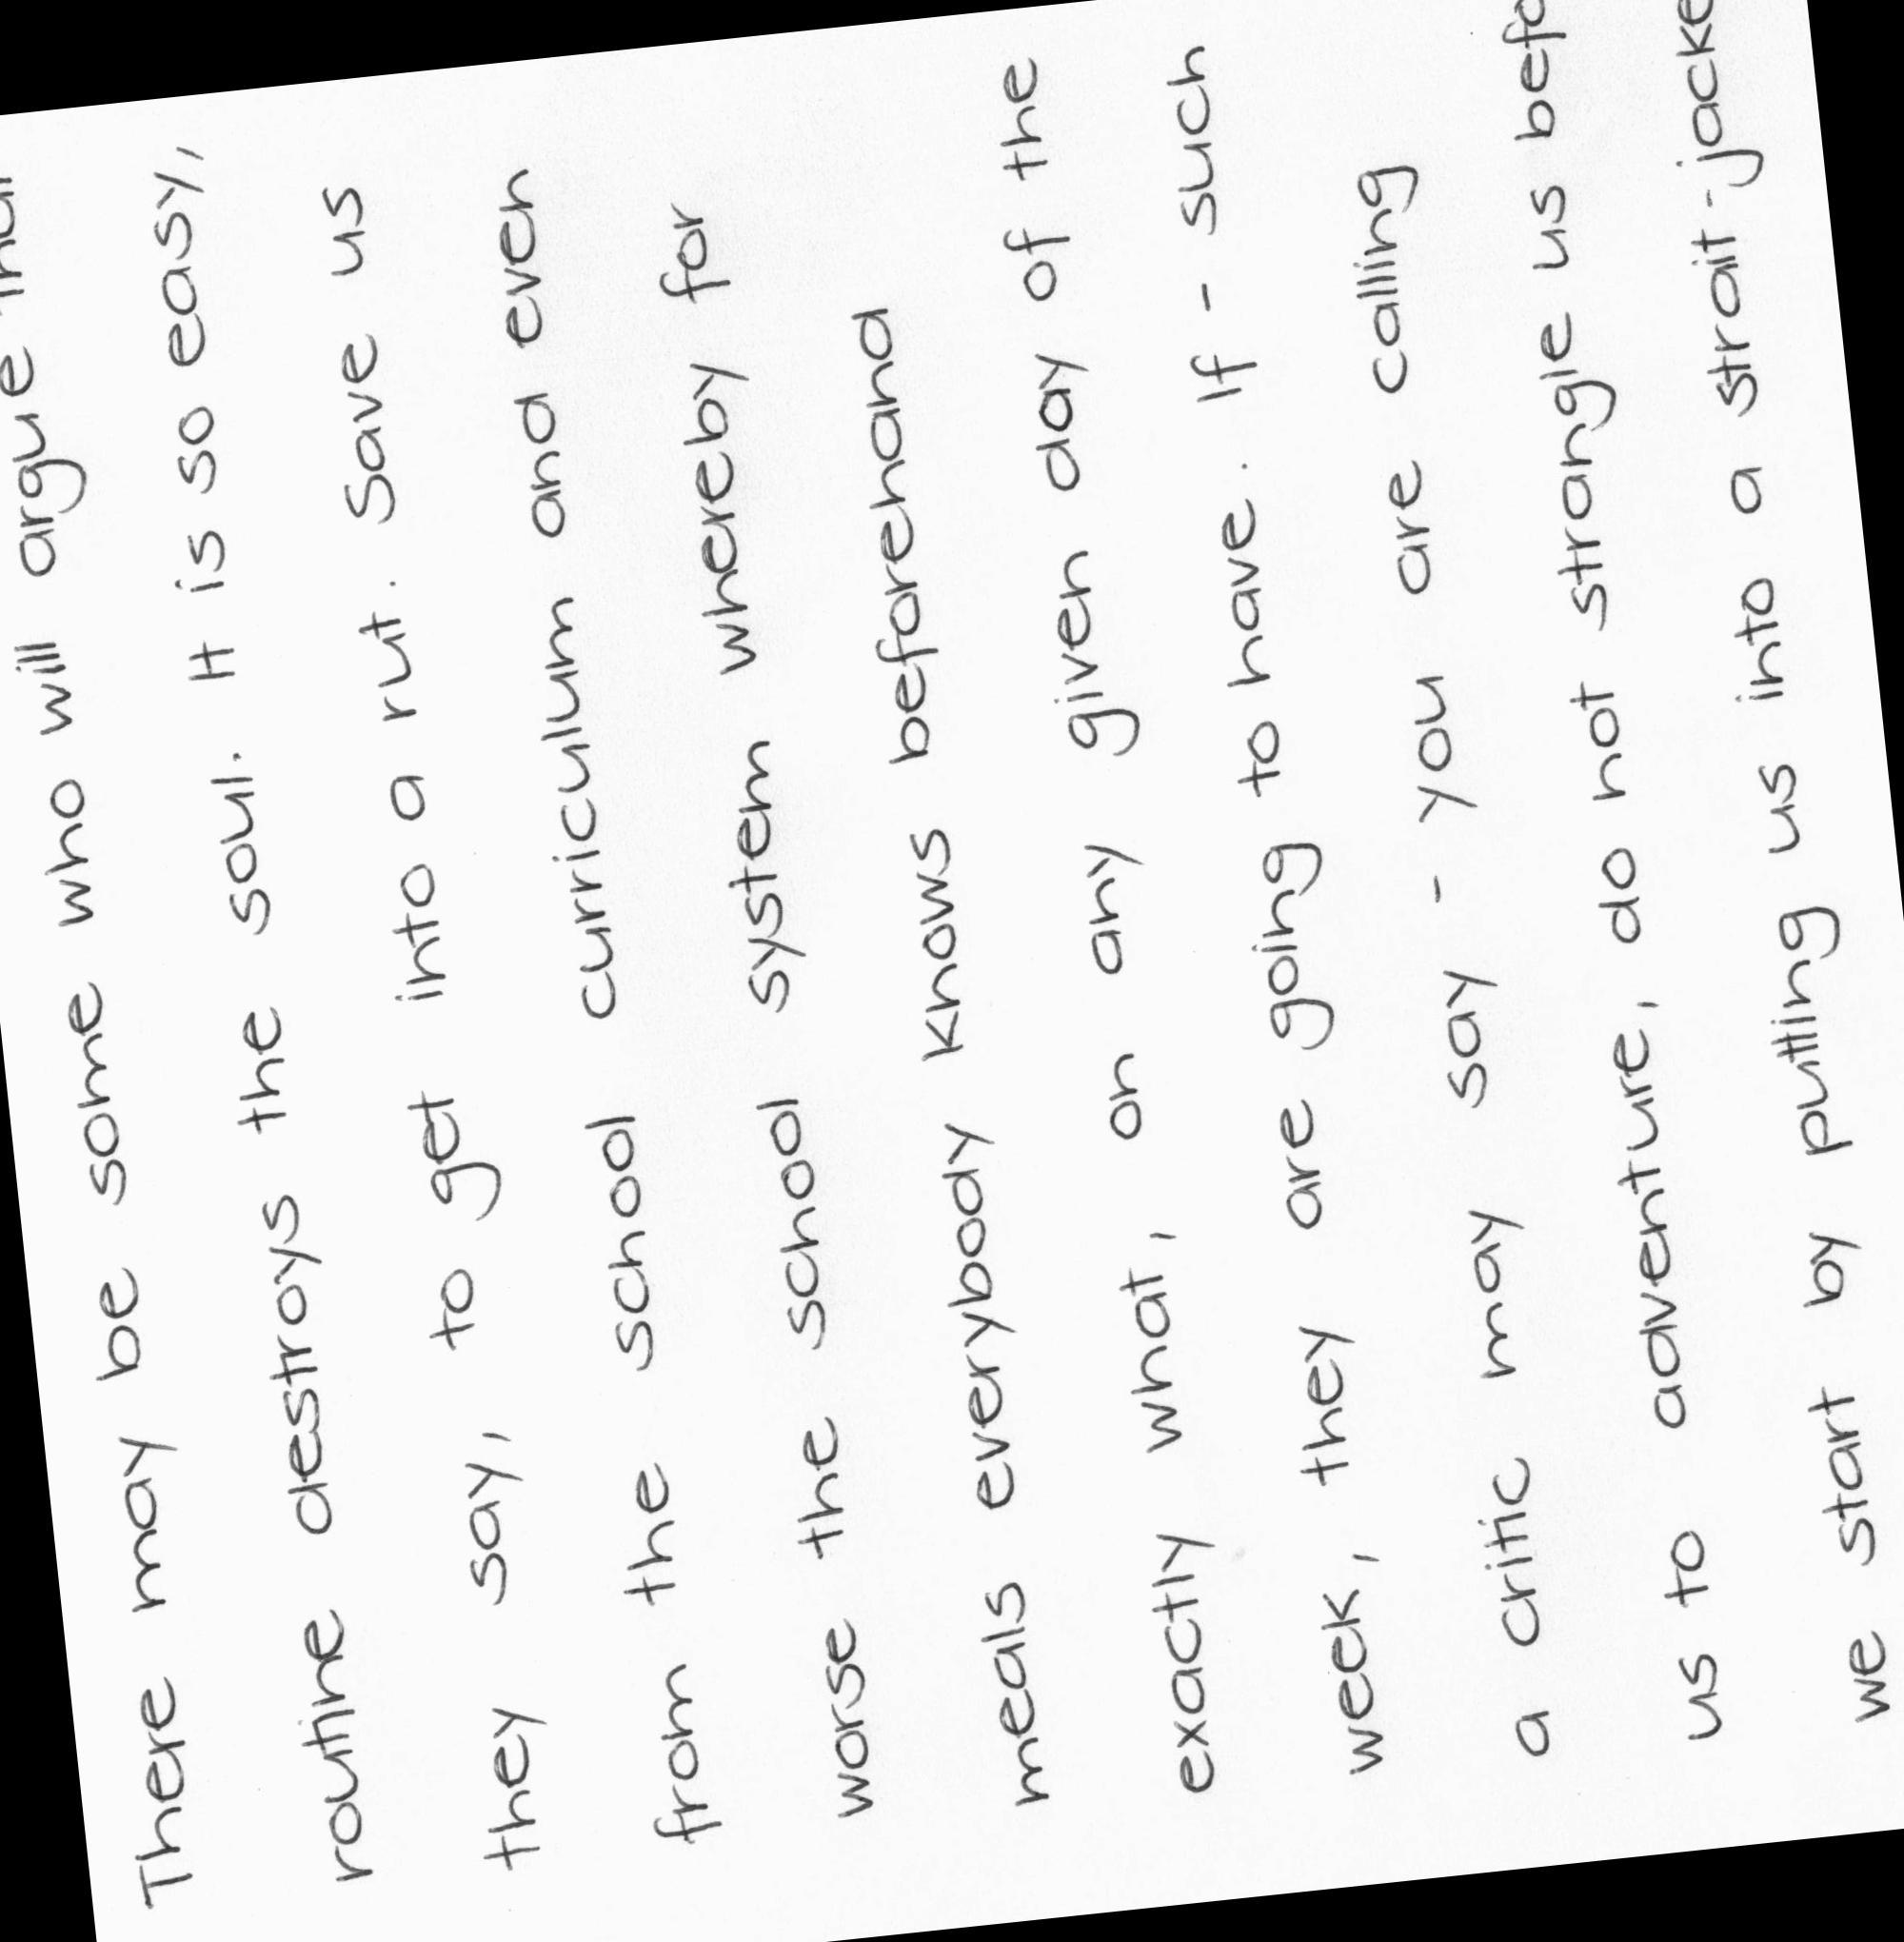 There may be some who will argue that
routine destroys the soul. It is so easy,
they say, to get into a rut. Save us
from the school curicullum and even
worse the school system whereby for
meals everybody knows beforehand
exactly what, on any given day of the
week, they are going to have. If - such
a critic may say - you are calling
us to adventure, do not strangle us befo
we start by putting us into a strait-jacke